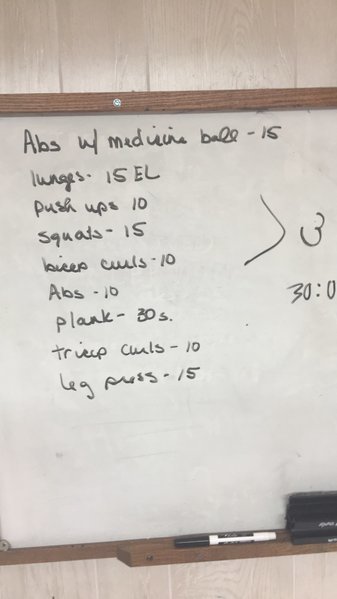 Abs w/ medicine ball - 15
lunges - 15 EL
push ups 10
squats - 15
bicep curls - 10
Abs - 10
plank - 30s.
tricep curls - 10
leg press - 15
3
30:0